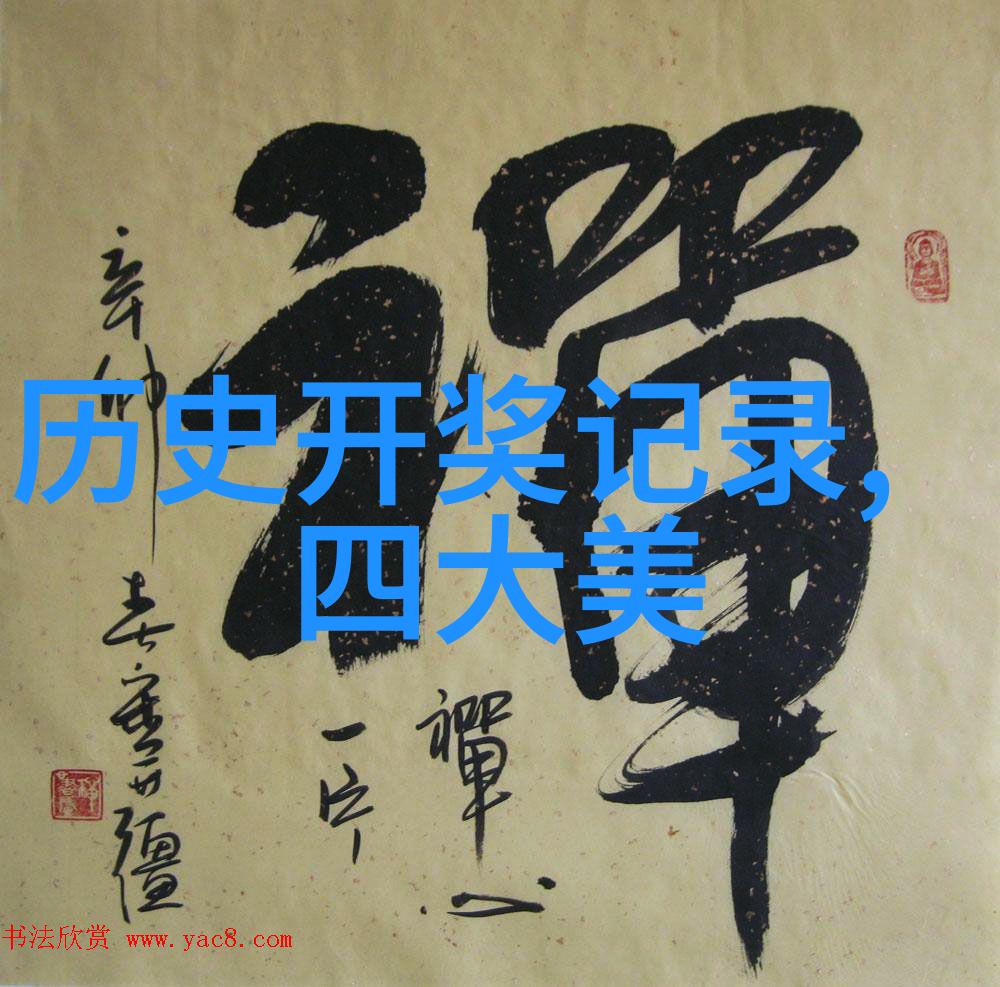 禪
禪心
一片
辛卯春
历史开奖记录,
四大美
书法欣赏 www.yac8.com